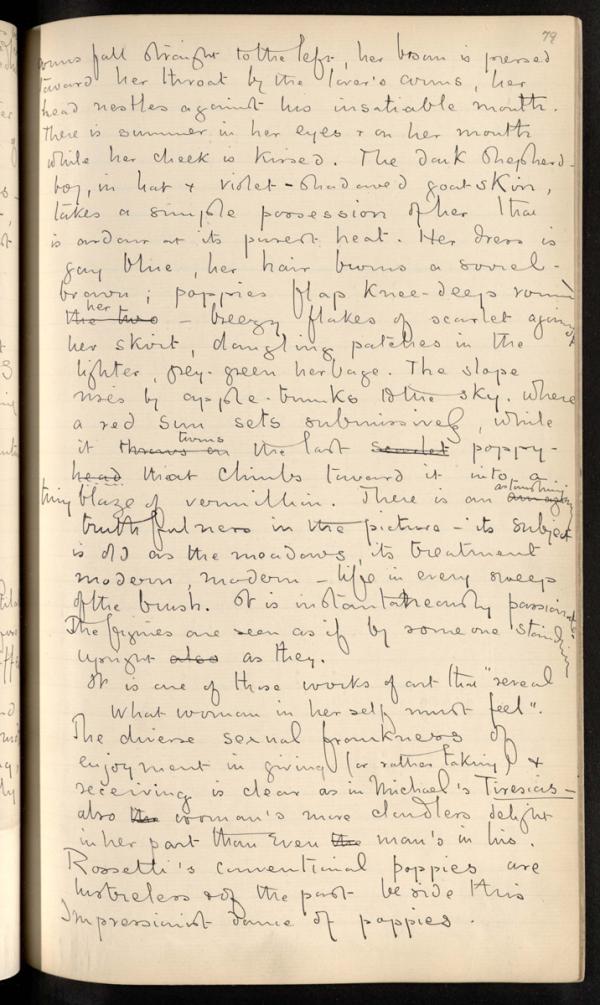 79
arms fall straight to the left, her bosom is pressed
toward her throat by the lover's arms, her
head nestles against his insatiable mouth.
There is summer in her eyes & on her mouth
while her cheek is kissed. The dark Shepherd-
boy, in hat & violet-shadowed goatskin,
takes a simple possession of her that
is ardour at its purest heat. Her dress is
gay blue, her hair burns a sorrel-
brown; poppies flap knee-deep round
the two her – breezy flakes of scarlet against
her skirt, dangling patches in the
lighter, grey-green herbage. The slope
rises by apple-trunks to the sky. where
a red sun sets submissively, while
it throws on turns the last scarlet poppy-
head that climbs toward it into a
tiny blaze of vermillion. There is an astonishing
truthfulness in the picture – its subject
is old as the meadows, its treatment
modern, modern – life in every sweep
of the brush. It is instantaneously passionate.
The figures are seen as if by some one standing
upright also as they.
It is one of those works of art that "reveal
What woman in herself must feel".
The diverse sexual frankness of
enjoyment in giving (or rather taking) &
receiving is clear as in Michael's Tiresias –
also the woman's more cloudless delight
in her part than even the man's in his.
Rossetti's conventional poppies are
lustreless & of the past beside this
Impressionist dance of poppies.